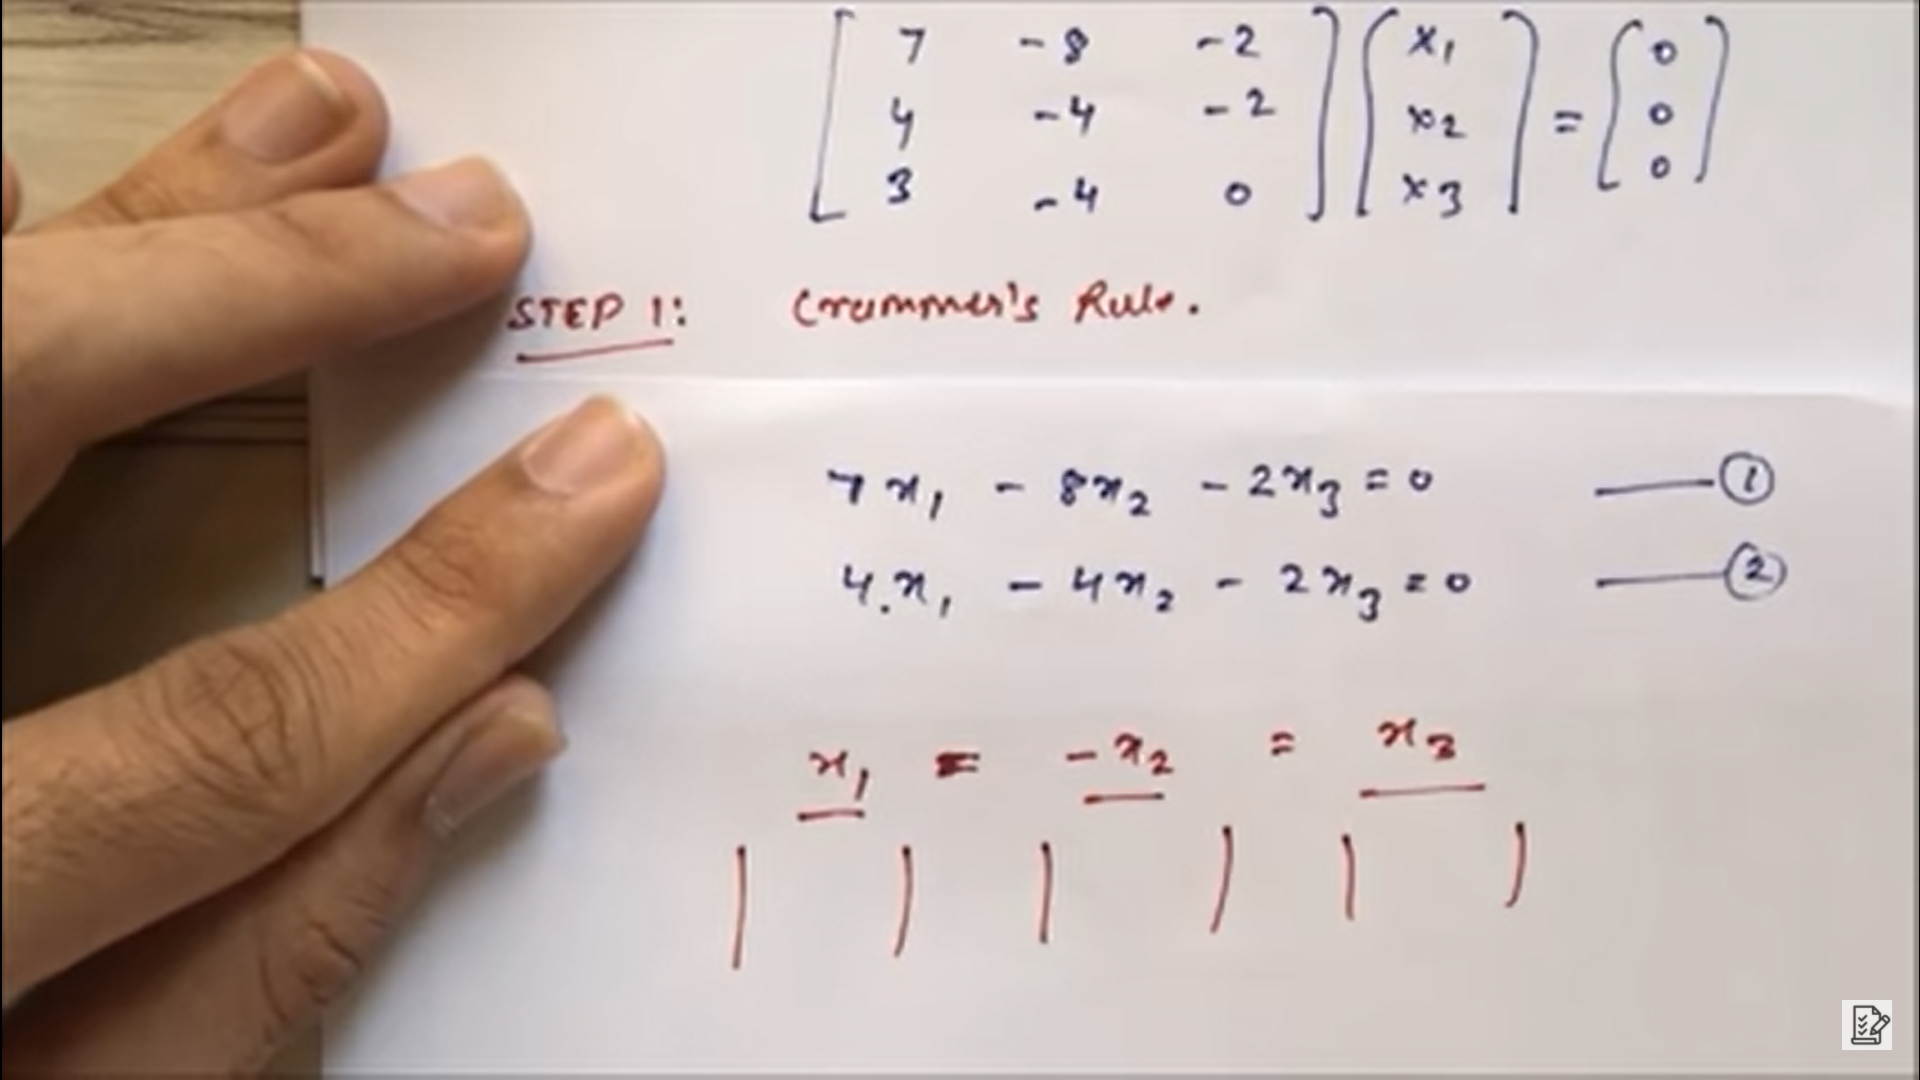 [ 7 -8 -2 ] [ x1 ] = [ 0 ]
[ 4 -4 -2 ] [ x2 ] [ 0 ]
[ 3 -4 0 ] [ x3 ] [ 0 ]
STEP 1: Crammer's Rule.
7x1 - 8x2 - 2x3 = 0 —— ①
4.x1 - 4x2 - 2x3 = 0 —— ②
x1 = -x2 = x3
| | | | | |